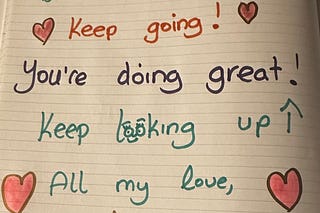 Keep going!
You're doing great!
Keep looking up
All my love,